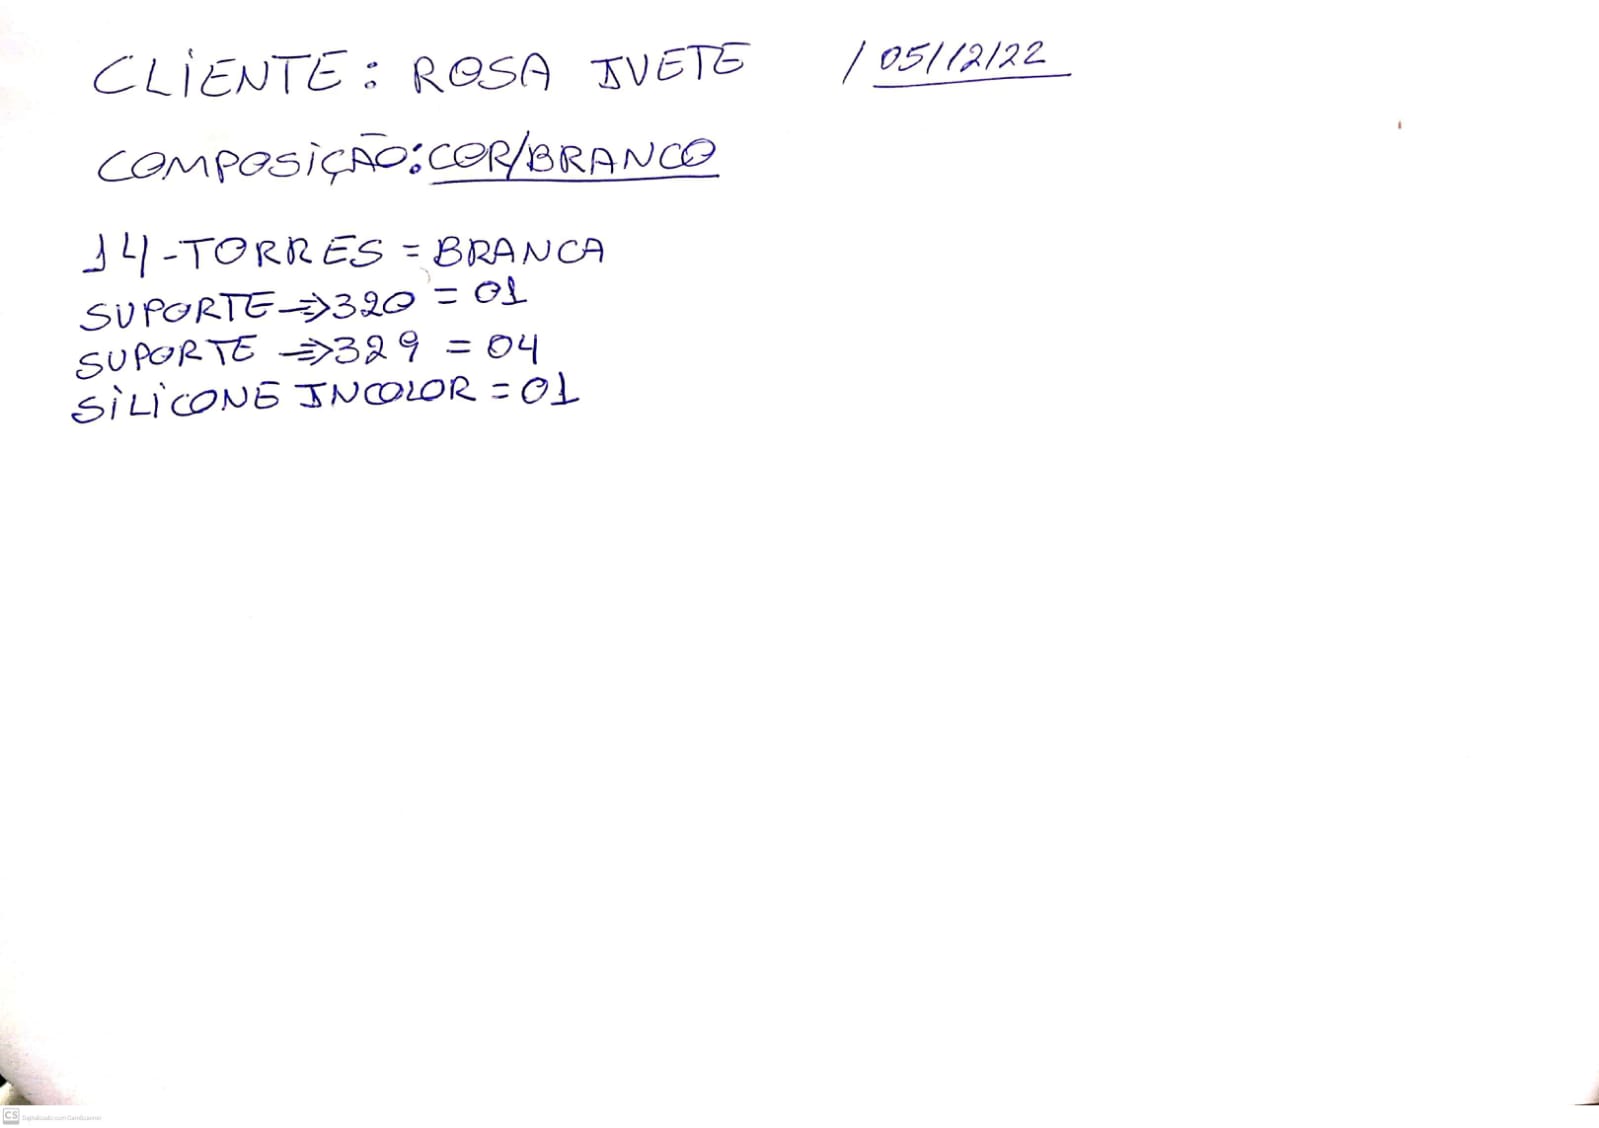 CLIENTE: ROSA IVETE / 05/12/22
COMPOSIÇÃO: COR/BRANCO
14-TORRES = BRANCA
SUPORTE => 320 = 01
SUPORTE => 329 = 04
SILICONE INCOLOR = 01
CS Digitalizado com CamScanner